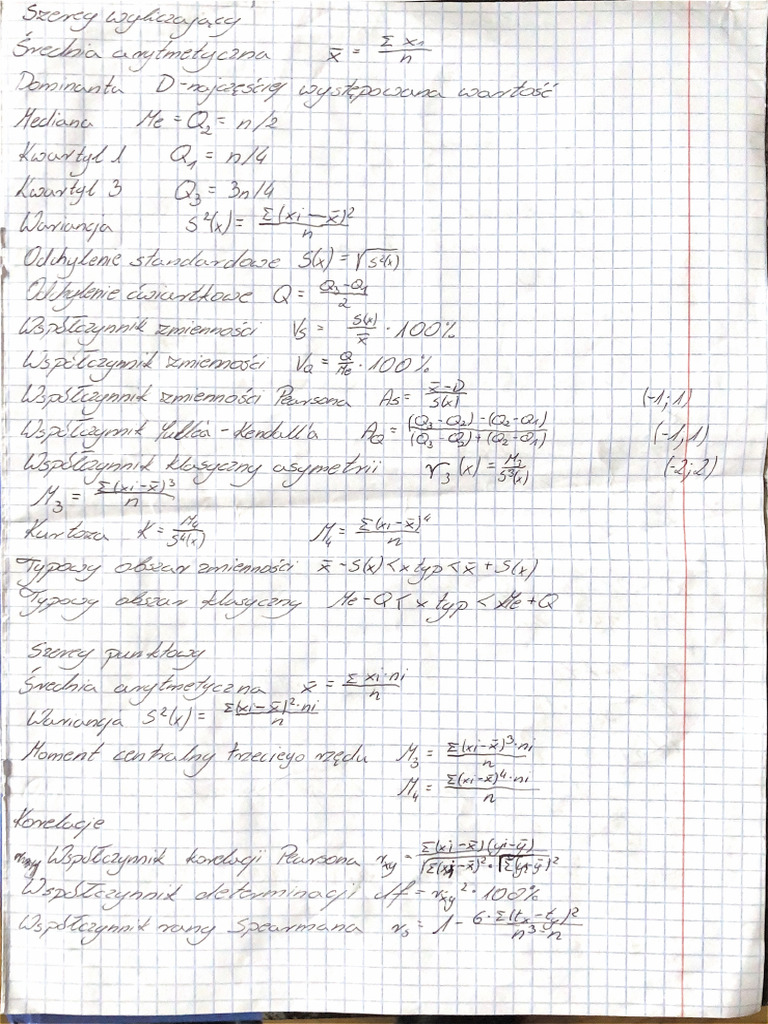 Szereg wyliczający
Średnia arytmetyczna x̄ = Σ x₁ / n
Dominanta D-najczęściej występowana wartość
Mediana Me = Q₂ = n/2
Kwartyl 1 Q₁ = n/4
Kwartyl 3 Q₃ = 3n/4
Wariancja S²(x) = Σ(xi - x̄)² / n
Odchylenie standardowe S(x) = √S²(x)
Odchylenie ćwiartkowe Q = Q₃-Q₁ / 2
Współczynnik zmienności Vs = S(x) / x̄ · 100%
Współczynnik zmienności VQ = Q / Me · 100%
Współczynnik zmienności Pearsona As = x̄-D / S(x) (-1;1)
Współczynnik Yulle'a - Kendall'a AQ = (Q₃-Q₂)-(Q₂-Q₁) / (Q₃-Q₂)+(Q₂-Q₁) (-1;1)
Współczynnik klasyczny asymetrii γ₃(x) = M₃ / S³(x) (-2;2)
M₃ = Σ(xi-x̄)³ / n
Kurtoza K = M₄ / S⁴(x) M₄ = Σ(xi-x̄)⁴ / n
Typowy obszar zmienności x̄ - S(x) < x typ < x̄ + S(x)
Typowy obszar klasyczny Me - Q < x typ < Me + Q
Szereg punktowy
Średnia arytmetyczna x̄ = Σ xi·ni / n
Wariancja S²(x) = Σ(xi-x̄)²·ni / n
Moment centralny trzeciego rzędu M₃ = Σ(xi-x̄)³·ni / n
M₄ = Σ(xi-x̄)⁴·ni / n
Korelacje
Współczynnik korelacji Pearsona rxy = Σ(xi-x̄)(yi-ȳ) / √Σ(xi-x̄)² · √Σ(yi-ȳ)²
Współczynnik determinacji df = rxy² · 100%
Współczynnik rang Spearmana rs = 1 - 6·Σ(tx-ty)² / n³-n